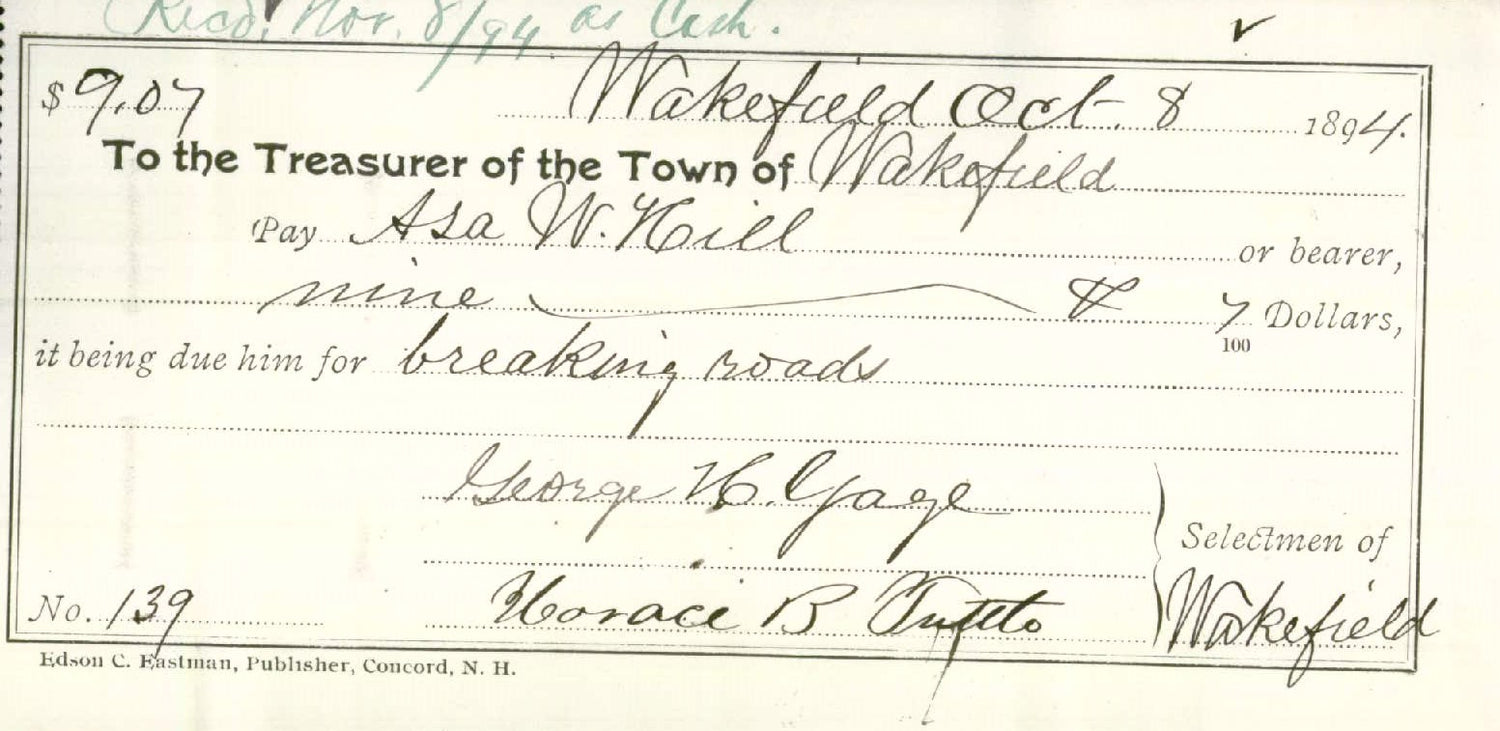 Recd. Nov. 8/94 as Cash.
$9.07 Wakefield Oct. 8 1894.
To the Treasurer of the Town of Wakefield
Pay Asa W. Hill or bearer,
nine & 7/100 Dollars,
it being due him for breaking roads
George H. Gage
Selectmen of
No. 139 Horace B Wakefield
Edson C. Eastman, Publisher, Concord, N. H.